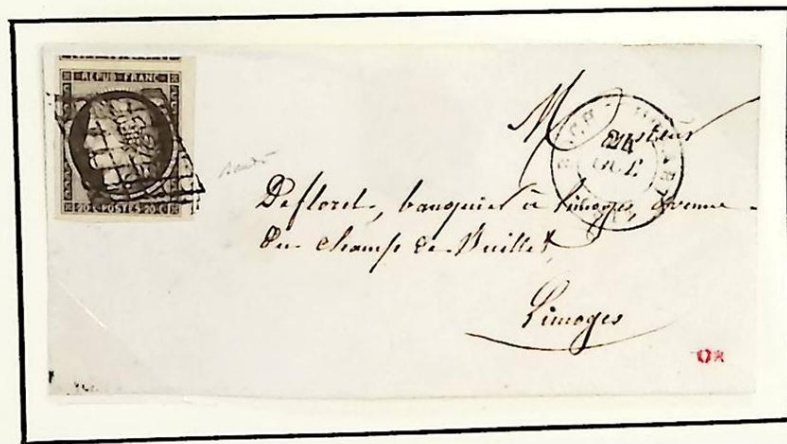 REPUB FRANC
20 C POSTES 20 C
Monsieur
Deflorel, banquier à Limoges, avenue
du champ de Juillet
Limoges